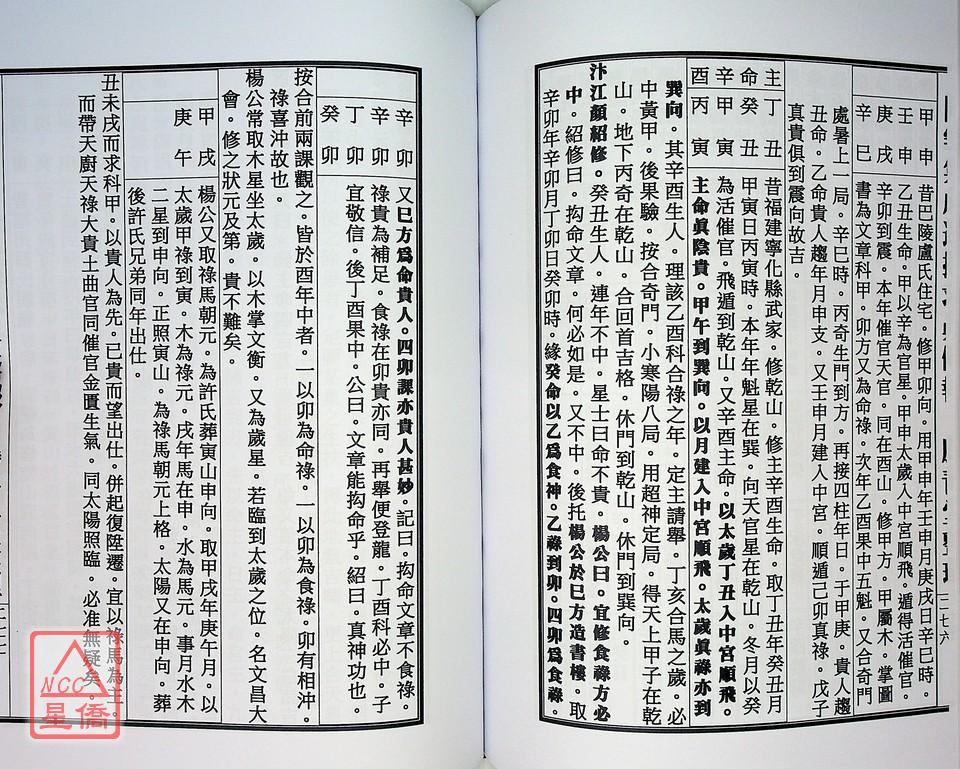 二七六
甲申 昔巴陵盧氏住宅。修甲卯向。用甲申年壬申月庚戌日辛巳時。
壬申 乙丑生命。甲以辛為官星。甲申太歲入中宮順飛。遁得活催官。
庚戌 辛卯到震。本年催官天官。同在酉山。修甲方。甲屬木。掌圖
辛巳 書為文章科甲。卯方又為命祿。次年乙酉果中五魁。又合奇門
處暑上一局。辛巳時。丙奇生門到方。再接四柱年日。于甲庚。貴人趨
丑命。乙命貴人趨年月申支。又壬申月建入中宮。順遁己卯真祿。戊子
真貴俱到震向故吉。
主丁丑 昔福建寧化縣武家。修乾山。修主辛酉生命。取丁丑年癸丑月
命癸丑 甲寅日丙寅時。本年年魁星在巽。向天官星在乾山。冬月以癸
辛甲寅 為活催官。飛遁到乾山。又辛酉主命。以太歲丁丑入中宮順飛。
酉丙寅 主命眞陰貴。甲午到巽向。以月建入中宮順飛。太歲眞祿亦到
巽向。其辛酉生人。理該乙酉科合祿之年。定主請舉。丁亥合馬之歲。必
中黃甲。後果驗。按合奇門。小寒陽八局。用超神定局。得天上甲子在乾
山。地下丙奇在乾山。合回首吉格。休門到乾山。休門到巽向。
汴江顏紹修。癸丑生人。連年不中。星士曰命不貴。楊公曰。宜修食祿方必
中。紹修曰。抅命文章。何必如是。又不中。後托楊公於巳方造書樓。取
辛卯年辛卯月丁卯日癸卯時。緣癸命以乙爲食神。乙祿到卯。四卯爲食祿。
辛卯 又巳方爲命貴人。四卯課亦貴人甚妙。記曰。抅命文章不食祿。
辛卯 祿貴為補足。食祿在卯貴亦同。再舉便登龍。丁酉科必中。子
丁卯 宜敬信。後丁酉果中。公曰。文章能抅命乎。紹曰。真神功也。
癸卯
按合前兩課觀之。皆於酉年中者。一以卯為命祿。一以卯為食祿。卯有相沖。
祿喜沖故也。
楊公常取木星坐太歲。以木掌文衡。又為歲星。若臨到太歲之位。名文昌大
會。修之狀元及第。貴不難矣。
甲戌 楊公又取祿馬朝元。為許氏葬寅山申向。取甲戌年庚午月。以
庚午 太歲甲祿到寅。木為祿元。戌年馬在申。水為馬元。事月水木
二星到申向。正照寅山。為祿馬朝元上格。太陽又在申向。葬
後許氏兄弟同年出仕。
丑未戌而求科甲。以貴人為先。已貴而望出仕。併起復陞遷。宜以祿馬為主。
而帶天廚天祿大貴土曲官同催官金匱生氣。同太陽照臨。必准無疑矣。
NCC
星僑